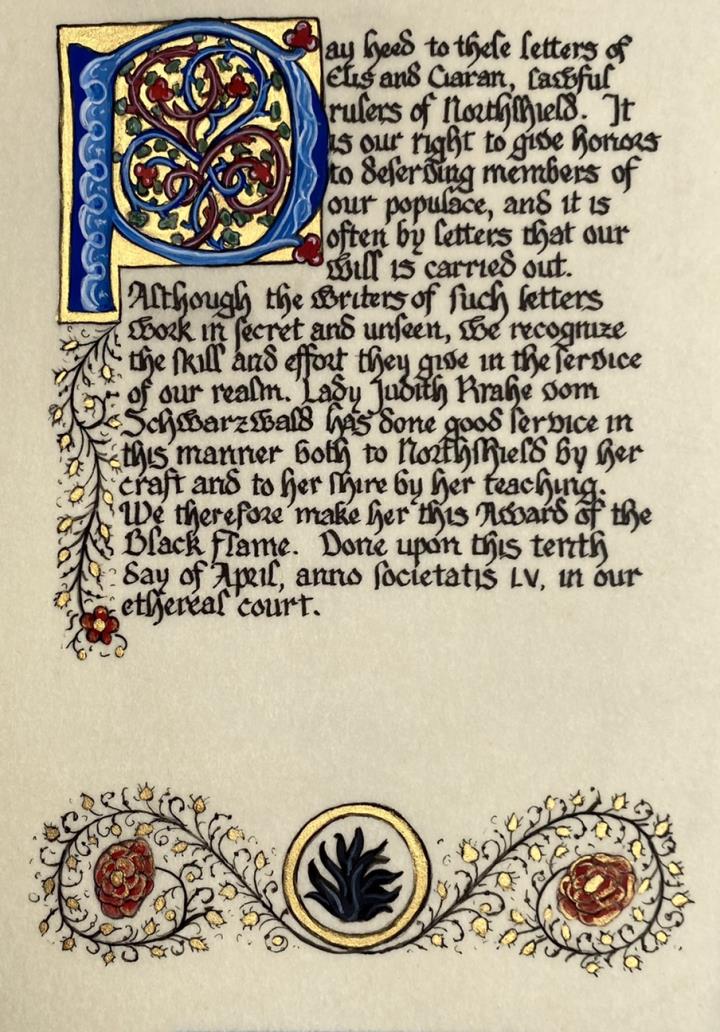 Pay heed to these letters of
Elis and Ciaran, lawful
rulers of Northshield. It
is our right to give honors
to deserving members of
our populace, and it is
often by letters that our
will is carried out.
Although the writers of such letters
work in secret and unseen, we recognize
the skill and effort they give in the service
of our realm. Lady Judith Krahe vom
Schwarzwald has done good service in
this manner both to Northshield by her
craft and to her shire by her teaching.
We therefore make her this Award of the
Black Flame. Done upon this tenth
day of April, anno societatis LV, in our
ethereal court.